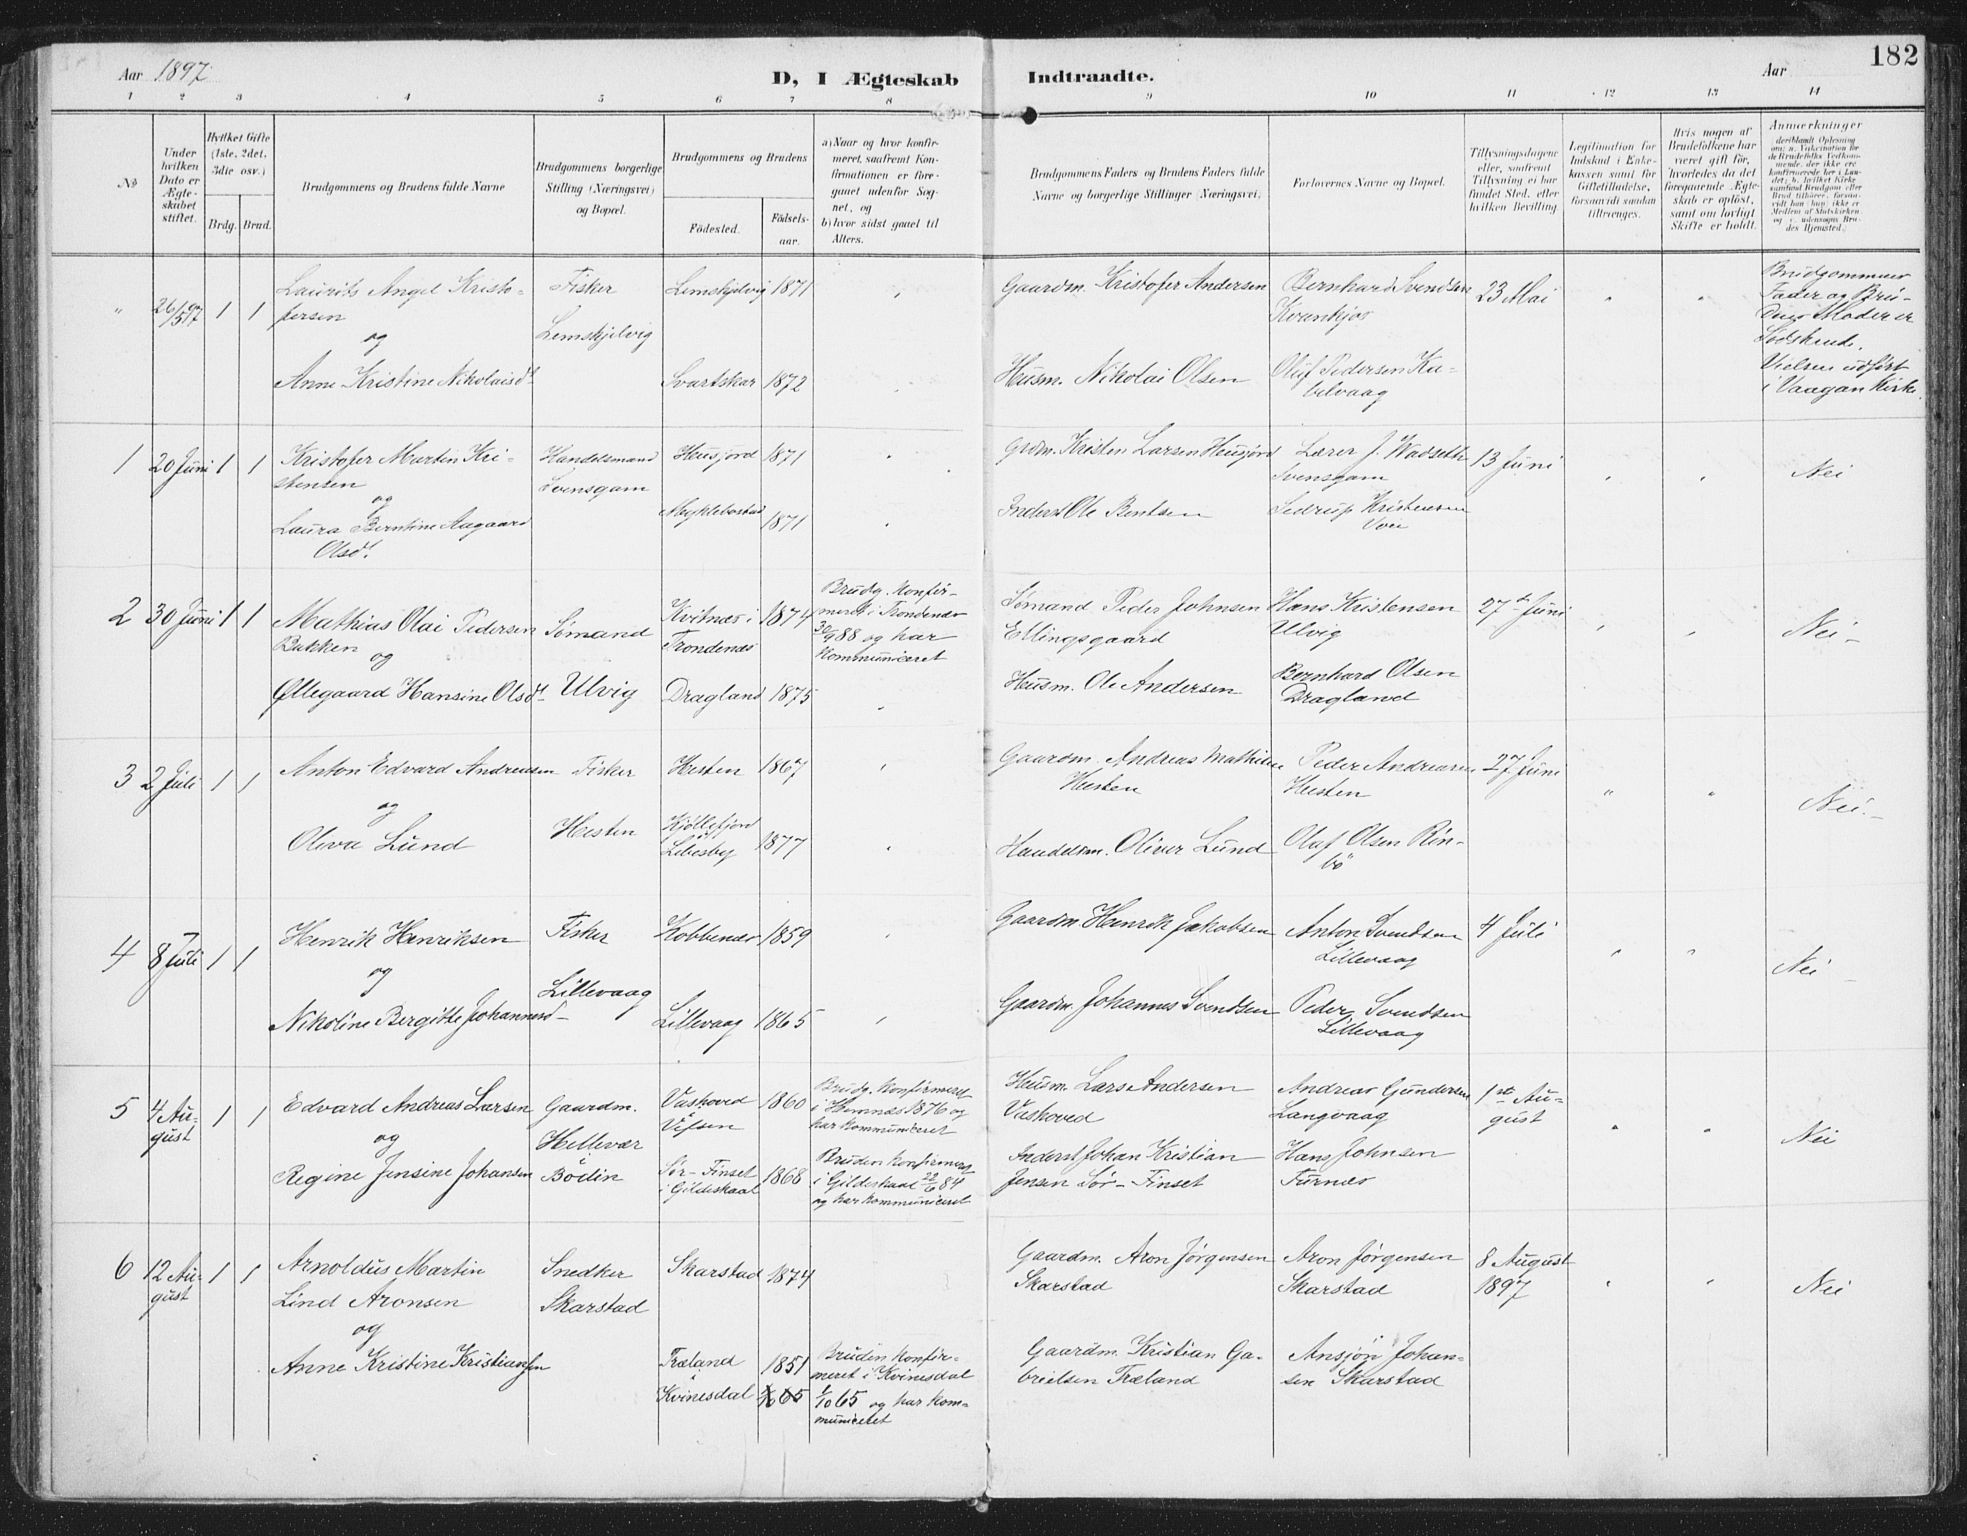 182
Aar 1897
D, I Ægteskab Indtraadte.
Aar
1 2 3 4 5 6 7 8 9 10 11 12 13 14
No
Under hvilken Dato er Ægteskabet stiftet.
Hvilket Gifte (1ste, 2det, 3die osv.)
Brdg. Brud.
Brudgommens og Brudens fulde Navne
Brudgommens borgerlige Stilling (Næringsvei) og Bopæl.
Brudgommens og Brudens
Födested.
Födsels-aar.
a) Naar og hvor konfirmeret, saafremt Konfirmationen er foregaaet udenfor Sognet, og
b) hvor sidst gaaet til Alters.
Brudgommens Faders og Brudens Faders fulde Navne og borgerlige Stillinger (Næringsvei).
Forlovernes Navne og Bopæl.
Tillysningsdagene eller, saafremt Tillysning ei har fundet Sted, efter hvilken Bevilling
Legitimation for Indskud i Enkekassen samt for Giftetilladelse, forsaavidt saadan tiltrænges.
Hvis nogen af Brudefolkene har været gift før, hvorledes da det foregaaende Ægteskab er oplöst, samt om lovligt Skifte er holdt.
Anmerkninger
" 26/5 97 1 1
Laurits Angel Kristofersen
og
Anne Kristine Nikolaisdt
Fisker
Lemskjelvig
Lemskjelvig 1871
Svartskar 1872
Gaardm. Kristofer Andersen
Husm. Nikolai Olsen
Bernhard Svendsen
Kvankjos
Oluf Pedersen Kabelvaag
23 Mai
Brudgommens
Fader og Brudens Moder er
Södskende.
Vielsen udført
i Vaagan Kirke.
1 20 Juni 1 1
Kristofer Martin Kristensen
og
Laura Berntine Aagaard
Olsdt.
Handelsmand
Svensgam
Husjord 1871
Myklebostad 1871
Grdm. Kristen Larsen Husjord
Inderst Ole Bentsen
Lærer J. Wadseth
Svensgam
Sedrup Kristensen
13 Juni
Nei
2 30 Juni 1 1
Mathias Olai Pedersen
Bakken
og
Øllegaard Hansine Olsdt
Sømand
Ulvig
Kvitnæs i
Trondenæs
1874
Dragland 1875
Brudg. konfirmeret i Trondenæs
30/9 88 og har
kommuniceret
Sømand Peder Johnsen
Ellingsgaard
Husm. Ole Andersen
Hans Kristensen
Ulvig
Bernhard Olsen
Dragland
27de Juni
Nei
3 2 Juli 1 1
Anton Edvard Andreassen
og
Oliva Lund
Fisker
Hesten
Hesten 1867
Kjöllefjord
Lebesby 1877
Gaardm. Andreas Mathisen
Hesten
Handelsm. Oliver Lund
Peder Andreasen
Hesten
Olaf Olsen Rinbö
27 Juni
Nei.
4 8 Juli 1 1
Henrik Henriksen
og
Nikoline Bergitte Johannesd
Fisker
Lillevaag
Kobbenæs 1859
Lillevaag 1865
Gaardm. Henrik Jakobsen
Gaardm. Johannes Svendsen
Anton Svendsen
Lillevaag
Peder Svendsen
Lillevaag
4 Juli
Nei
5 4 August 1 1
Edvard Andreas Larsen
og
Regine Jensine Johansen
Gaardm.
Hellevær
Bödin
Vashoved
Vefsen
1860
Sör-Finset
i Gildeskaal 1868
Brudg. konfirmeret
i Hemnæs 1876 og
har kommuniceret
Bruden konfirmeret
i Gildeskaal 22/6 84
og har kommuniceret
Husm. Lars Andersen
Vashoved
Inderst Johan Kristian
Jensen Sør-Finset
Andreas Gundersen
Langvaag
Hans Johnsen
Furnæs
1ste August
Nei
6 12 August 1 1
Arnoldus Martin
Lind Aronsen
og
Anne Kristine Kristiansen
Snedker
Skarstad
Skarstad 1874
Træland 1851
Kvinesdal
Bruden konfirmeret i Kvinesdal
1/10 65 og har kommuniceret
Gaardm. Aron Jørgensen
Skarstad
Gaardm. Kristian Gabrielsen Træland
Aron Jörgensen
Skarstad
Ansjön Johansen Skarstad
8 August
1897
Nei